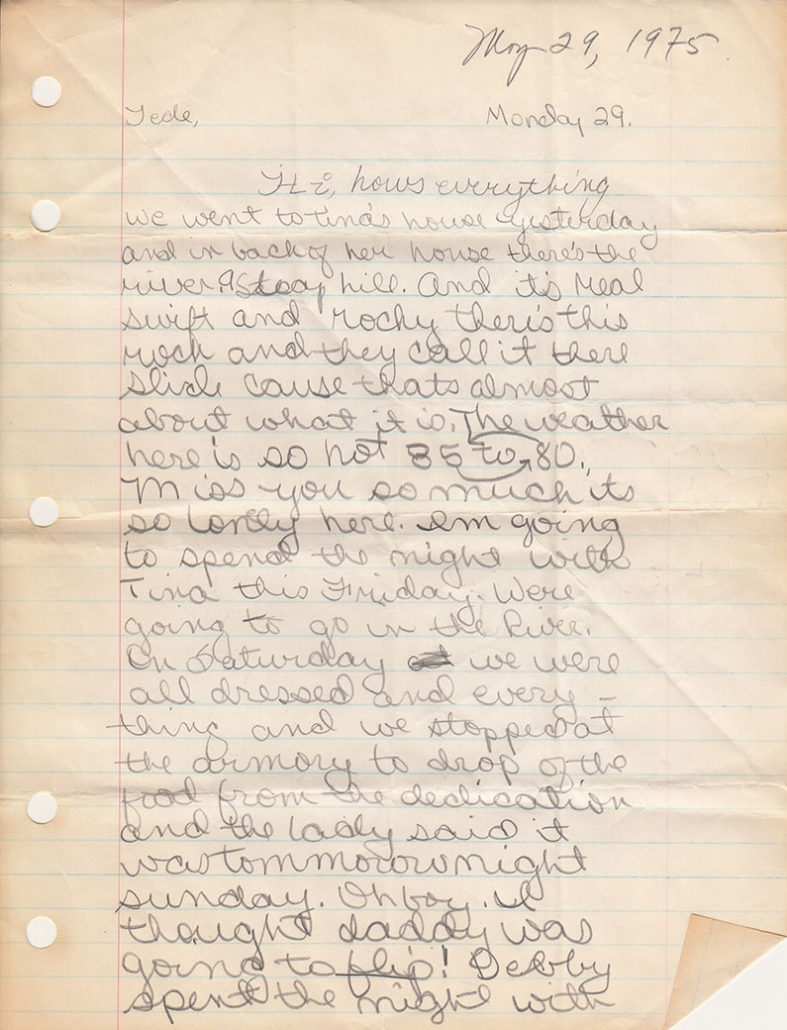 May 29, 1975
Tede, Monday 29.
Hi, hows everything
we went to tina's house yesterday
and in back of her house there's the
river. A steap hill. And it's real
swift and rochy there's this
roch and they call it there
slide cause thats almost
about what it is. The weather
here is so hot 85 to 80.
Miss you so much its
so lonely here. Im going
to spend the night with
Tina this Friday. Were
going to go in the River.
On Saturday we were
all dressed and every-
thing and we stopped at
the armory to drop of the
food from the dedication
and the lady said it
was tommorow night
sunday. Oh boy. I
thought daddy was
going to flip! Debby
spent the night with